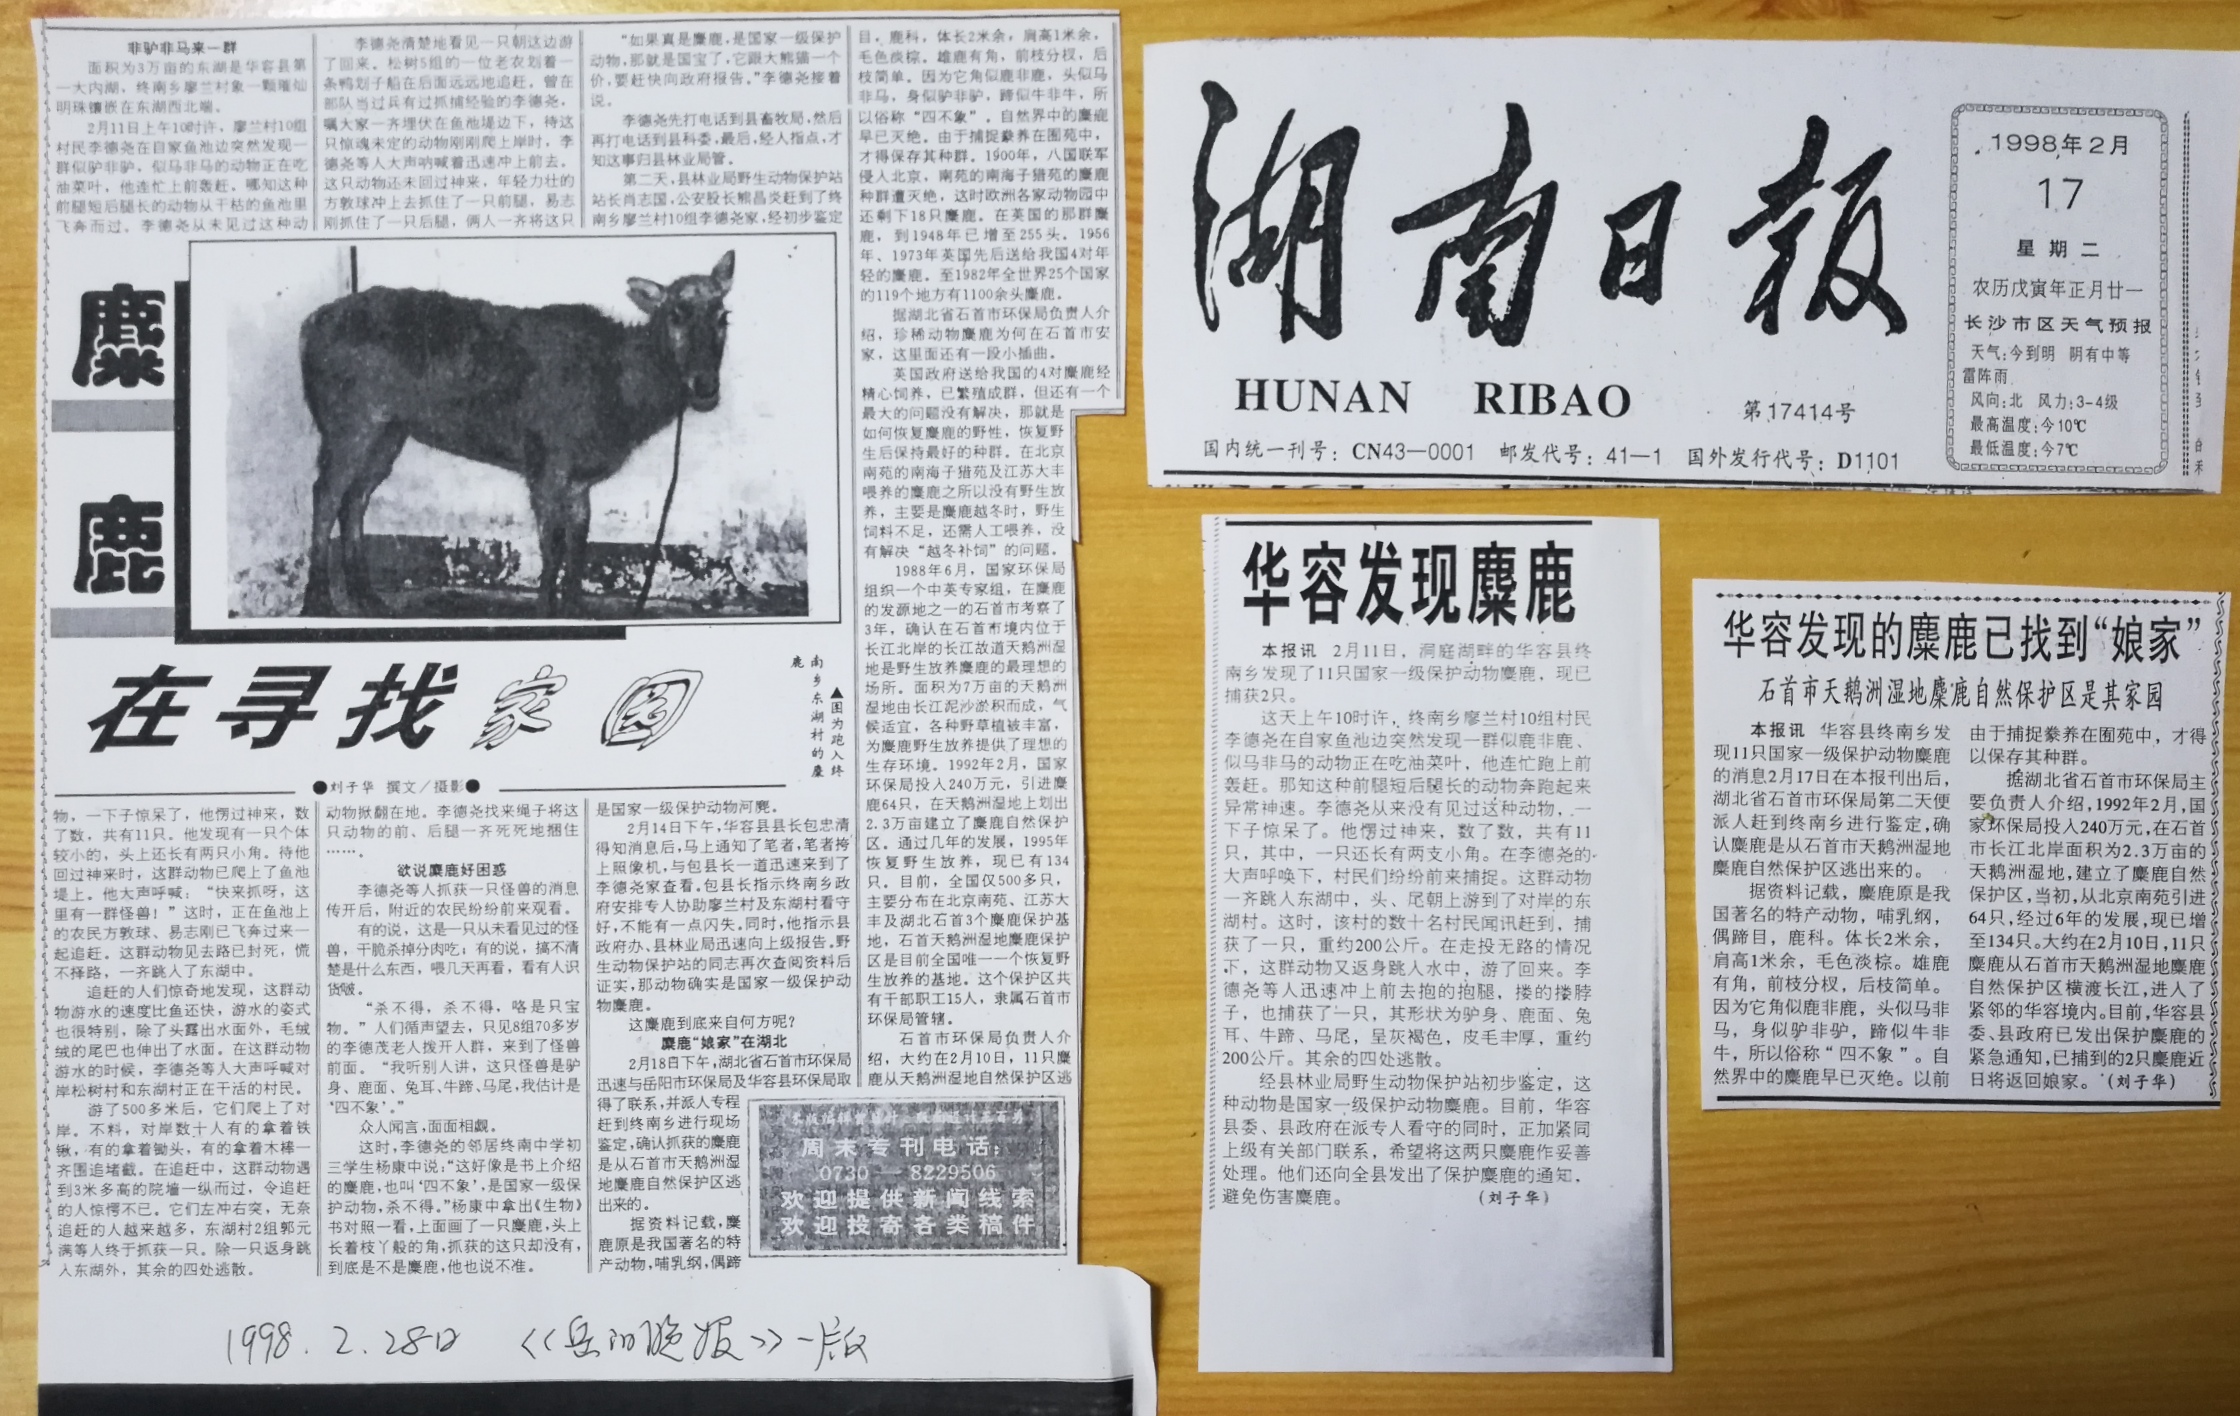 非驴非马来一群
面积为3万亩的东湖是华容县第
一大内湖，终南乡廖兰村象一颗璀灿
明珠镶嵌在东湖西北端。
2月11日上午10时许，廖兰村10组
村民李德尧在自家鱼池边突然发现一
群似驴非驴、似马非马的动物正在吃
油菜叶，他连忙上前轰赶，哪知这种
前腿短后腿长的动物从干枯的鱼池里
飞奔而过。李德尧从未见过这种动
李德尧清楚地看见一只朝这边游
了回来。松树5组的一位老农划着一
条鸭划子船在后面远远地追赶。曾在
部队当过兵有过抓捕经验的李德尧，
嘱大家一齐埋伏在鱼池堤边下，待这
只惊魂未定的动物刚刚爬上岸时，李
德尧等人大声呐喊着迅速冲上前去。
这只动物还未回过神来，年轻力壮的
方敦球冲上去抓住了一只前腿，易志
刚抓住了一只后腿，俩人一齐将这只
“如果真是麋鹿，是国家一级保护
动物，那就是国宝了，它跟大熊猫一个
价，要赶快向政府报告。”李德尧接着
说。
李德尧先打电话到县畜牧局，然后
再打电话到县科委，最后，经人指点，才
知这事归县林业局管。
第二天，县林业局野生动物保护站
站长尚志国，公安股长熊昌炎赶到了终
南乡廖兰村10组李德尧家，经初步鉴定
麋
鹿
在寻找家园
▲图为跑入终
南乡东湖村的麋
鹿
●刘子华 撰文／摄影●
物，一下子惊呆了，他愣过神来，数
了数，共有11只。他发现有一只个体
较小的，头上还长有两只小角。待他
回过神来时，这群动物已爬上了鱼池
堤上。他大声呼喊：“快来抓呀，这
里有一群怪兽！”这时，正在鱼池上
的农民方敦球、易志刚已飞奔过来一
起追赶。这群动物见去路已封死，慌
不择路，一齐跳入了东湖中。
追赶的人们惊奇地发现，这群动
物游水的速度比鱼还快，游水的姿式
也很特别，除了头露出水面外，毛绒
绒的尾巴也伸出了水面。在这群动物
游水的时候，李德尧等人大声呼喊对
岸松树村和东湖村正在干活的村民。
游了500多米后，它们爬上了对
岸。不料，对岸数十人有的拿着铁
锹，有的拿着锄头，有的拿着木棒一
齐围追堵截。在追赶中，这群动物遇
到3米多高的院墙一纵而过，令追赶
的人惊愕不已。它们左冲右突，无奈
追赶的人越来越多，东湖村2组郭元
满等人终于抓获一只。除一只返身跳
入东湖外，其余的四处逃散。
动物掀翻在地。李德尧找来绳子将这
只动物的前、后腿一齐死死地捆住
……。
欲说麋鹿好困惑
李德尧等人抓获一只怪兽的消息
传开后，附近的农民纷纷前来观看。
有的说，这是一只从未看见过的怪
兽，干脆杀掉分肉吃；有的说，搞不清
楚是什么东西，喂几天再看，看有人识
货啵。
“杀不得，杀不得，咯是只宝
物。”人们循声望去，只见8组70多岁
的李德茂老人拨开人群，来到了怪兽
前面。“我听别人讲，这只怪兽是驴
身、鹿面、兔耳、牛蹄、马尾，我估计是
‘四不象’。”
众人闻言，面面相觑。
这时，李德尧的邻居终南中学初
三学生杨康中说：“这好像是书上介绍
的麋鹿，也叫‘四不象’，是国家一级保
护动物，杀不得。”杨康中拿出《生物》
书对照一看，上面画了一只麋鹿，头上
长着枝丫般的角，抓获的这只却没有，
到底是不是麋鹿，他也说不准。
是国家一级保护动物河麂。
2月14日下午，华容县县长包忠清
得知消息后，马上通知了笔者，笔者挎
上照像机，与包县长一道迅速来到了
李德尧家查看。包县长指示终南乡政
府安排专人协助廖兰村及东湖村看守
好，不能有一点闪失。同时，他指示县
政府办、县林业局迅速向上级报告。野
生动物保护站的同志再次查阅资料后
证实，那动物确实是国家一级保护动
物麋鹿。
这麋鹿到底来自何方呢？
麋鹿“娘家”在湖北
2月18日下午，湖北省石首市环保局
迅速与岳阳市环保局及华容县环保局取
得了联系，并派人专程
赶到终南乡进行现场
鉴定，确认抓获的麋鹿
是从石首市天鹅洲湿
地麋鹿自然保护区逃
出来的。
据资料记载，麋
鹿原是我国著名的特
产动物，哺乳纲，偶蹄
目，鹿科，体长2米余，肩高1米余，
毛色淡棕。雄鹿有角，前枝分杈，后
枝简单。因为它角似鹿非鹿，头似马
非马，身似驴非驴，蹄似牛非牛，所
以俗称“四不象”。自然界中的麋鹿
早已灭绝。由于捕捉豢养在囿苑中，
才得保存其种群。1900年，八国联军
侵入北京，南苑的南海子猎苑的麋鹿
种群遭灭绝，这时欧洲各家动物园中
还剩下18只麋鹿。在英国的那群麋
鹿，到1948年已增至255头。1956
年、1973年英国先后送给我国4对年
轻的麋鹿。至1982年全世界25个国家
的119个地方有1100余头麋鹿。
据湖北省石首市环保局负责人介
绍，珍稀动物麋鹿为何在石首市安
家，这里面还有一段小插曲。
英国政府送给我国的4对麋鹿经
精心饲养，已繁殖成群，但还有一个
最大的问题没有解决，那就是
如何恢复麋鹿的野性，恢复野
生后保持最好的种群。在北京
南苑的南海子猎苑及江苏大丰
喂养的麋鹿之所以没有野生放
养，主要是麋鹿越冬时，野生
饲料不足，还需人工喂养，没
有解决“越冬补饲”的问题。
1988年6月，国家环保局
组织一个中英专家组，在麋鹿
的发源地之一的石首市考察了
3年，确认在石首市境内位于
长江北岸的长江故道天鹅洲湿
地是野生放养麋鹿的最理想的
场所。面积为7万亩的天鹅洲
湿地由长江泥沙淤积而成，气
候适宜，各种野草植被丰富，
为麋鹿野生放养提供了理想的
生存环境。1992年2月，国家
环保局投入240万元，引进麋
鹿64只，在天鹅洲湿地上划出
2.3万亩建立了麋鹿自然保护
区。通过几年的发展，1995年
恢复野生放养，现已有134
只。目前，全国仅500多只，
主要分布在北京南苑、江苏大
丰及湖北石首3个麋鹿保护基
地，石首天鹅洲湿地麋鹿保护
区是目前全国唯一一个恢复野
生放养的基地。这个保护区共
有干部职工15人，隶属石首市
环保局管辖。
石首市环保局负责人介
绍，大约在2月10日，11只麋
鹿从天鹅洲湿地自然保护区逃
周末专刊电话：
0730—8229506
欢迎提供新闻线索
欢迎投寄各类稿件
1998.2.28日 《岳阳晚报》一版
湖南日报
HUNAN RIBAO
第17414号
国内统一刊号：CN43—0001 邮发代号：41—1 国外发行代号：D1101
1998年2月
17
星期二
农历戊寅年正月廿一
长沙市区天气预报
天气：今到明 阴有中等
雷阵雨
风向：北 风力：3-4级
最高温度：今10℃
最低温度：今7℃
华容发现麋鹿
本报讯 2月11日，洞庭湖畔的华容县终
南乡发现了11只国家一级保护动物麋鹿，现已
捕获2只。
这天上午10时许，终南乡廖兰村10组村民
李德尧在自家鱼池边突然发现一群似鹿非鹿、
似马非马的动物正在吃油菜叶，他连忙跑上前
轰赶。那知这种前腿短后腿长的动物奔跑起来
异常神速。李德尧从来没有见过这种动物，一
下子惊呆了。他愣过神来，数了数，共有11
只，其中，一只还长有两支小角。在李德尧的
大声呼唤下，村民们纷纷前来捕捉。这群动物
一齐跳入东湖中，头、尾朝上游到了对岸的东
湖村。这时，该村的数十名村民闻讯赶到，捕
获了一只，重约200公斤。在走投无路的情况
下，这群动物又返身跳入水中，游了回来。李
德尧等人迅速冲上前去抱的抱腿，搂的搂脖
子，也捕获了一只，其形状为驴身、鹿面、兔
耳、牛蹄、马尾，呈灰褐色，皮毛丰厚，重约
200公斤。其余的四处逃散。
经县林业局野生动物保护站初步鉴定，这
种动物是国家一级保护动物麋鹿。目前，华容
县委、县政府在派专人看守的同时，正加紧同
上级有关部门联系，希望将这两只麋鹿作妥善
处理。他们还向全县发出了保护麋鹿的通知，
避免伤害麋鹿。 （刘子华）
华容发现的麋鹿已找到“娘家”
石首市天鹅洲湿地麋鹿自然保护区是其家园
本报讯 华容县终南乡发
现11只国家一级保护动物麋鹿
的消息2月17日在本报刊出后，
湖北省石首市环保局第二天便
派人赶到终南乡进行鉴定，确
认麋鹿是从石首市天鹅洲湿地
麋鹿自然保护区逃出来的。
据资料记载，麋鹿原是我
国著名的特产动物，哺乳纲，
偶蹄目，鹿科。体长2米余，
肩高1米余，毛色淡棕。雄鹿
有角，前枝分杈，后枝简单。
因为它角似鹿非鹿，头似马非
马，身似驴非驴，蹄似牛非
牛，所以俗称“四不象”。自
然界中的麋鹿早已灭绝。以前
由于捕捉豢养在囿苑中，才得
以保存其种群。
据湖北省石首市环保局主
要负责人介绍，1992年2月，国
家环保局投入240万元，在石首
市长江北岸面积为2.3万亩的
天鹅洲湿地，建立了麋鹿自然
保护区，当初，从北京南苑引进
64只，经过6年的发展，现已增
至134只。大约在2月10日，11只
麋鹿从石首市天鹅洲湿地麋鹿
自然保护区横渡长江，进入了
紧邻的华容境内。目前，华容县
委、县政府已发出保护麋鹿的
紧急通知，已捕到的2只麋鹿近
日将返回娘家。（刘子华）